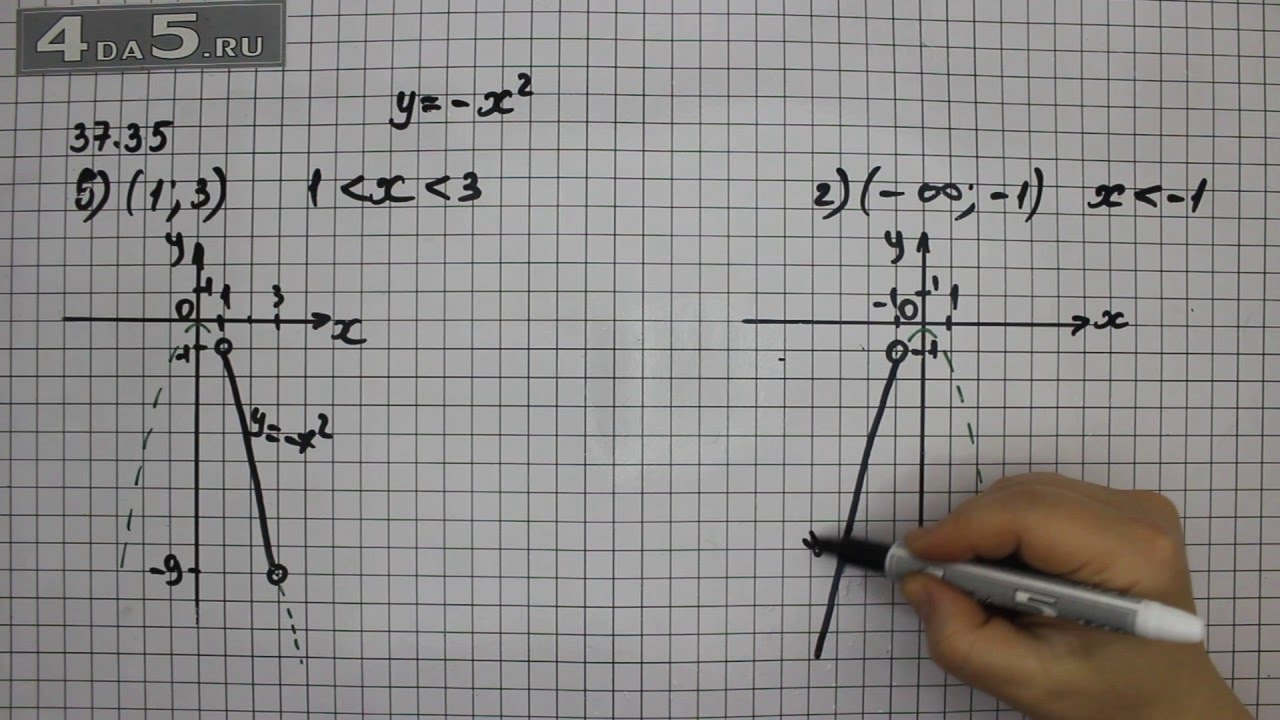 4DA5.RU
y = -x²
37.35
б) (1; 3) 1 < x < 3
г) (-∞; -1) x < -1
y
1
0
1
3
x
-1
y = -x²
-9
y
1
-1
0
1
x
-1
5